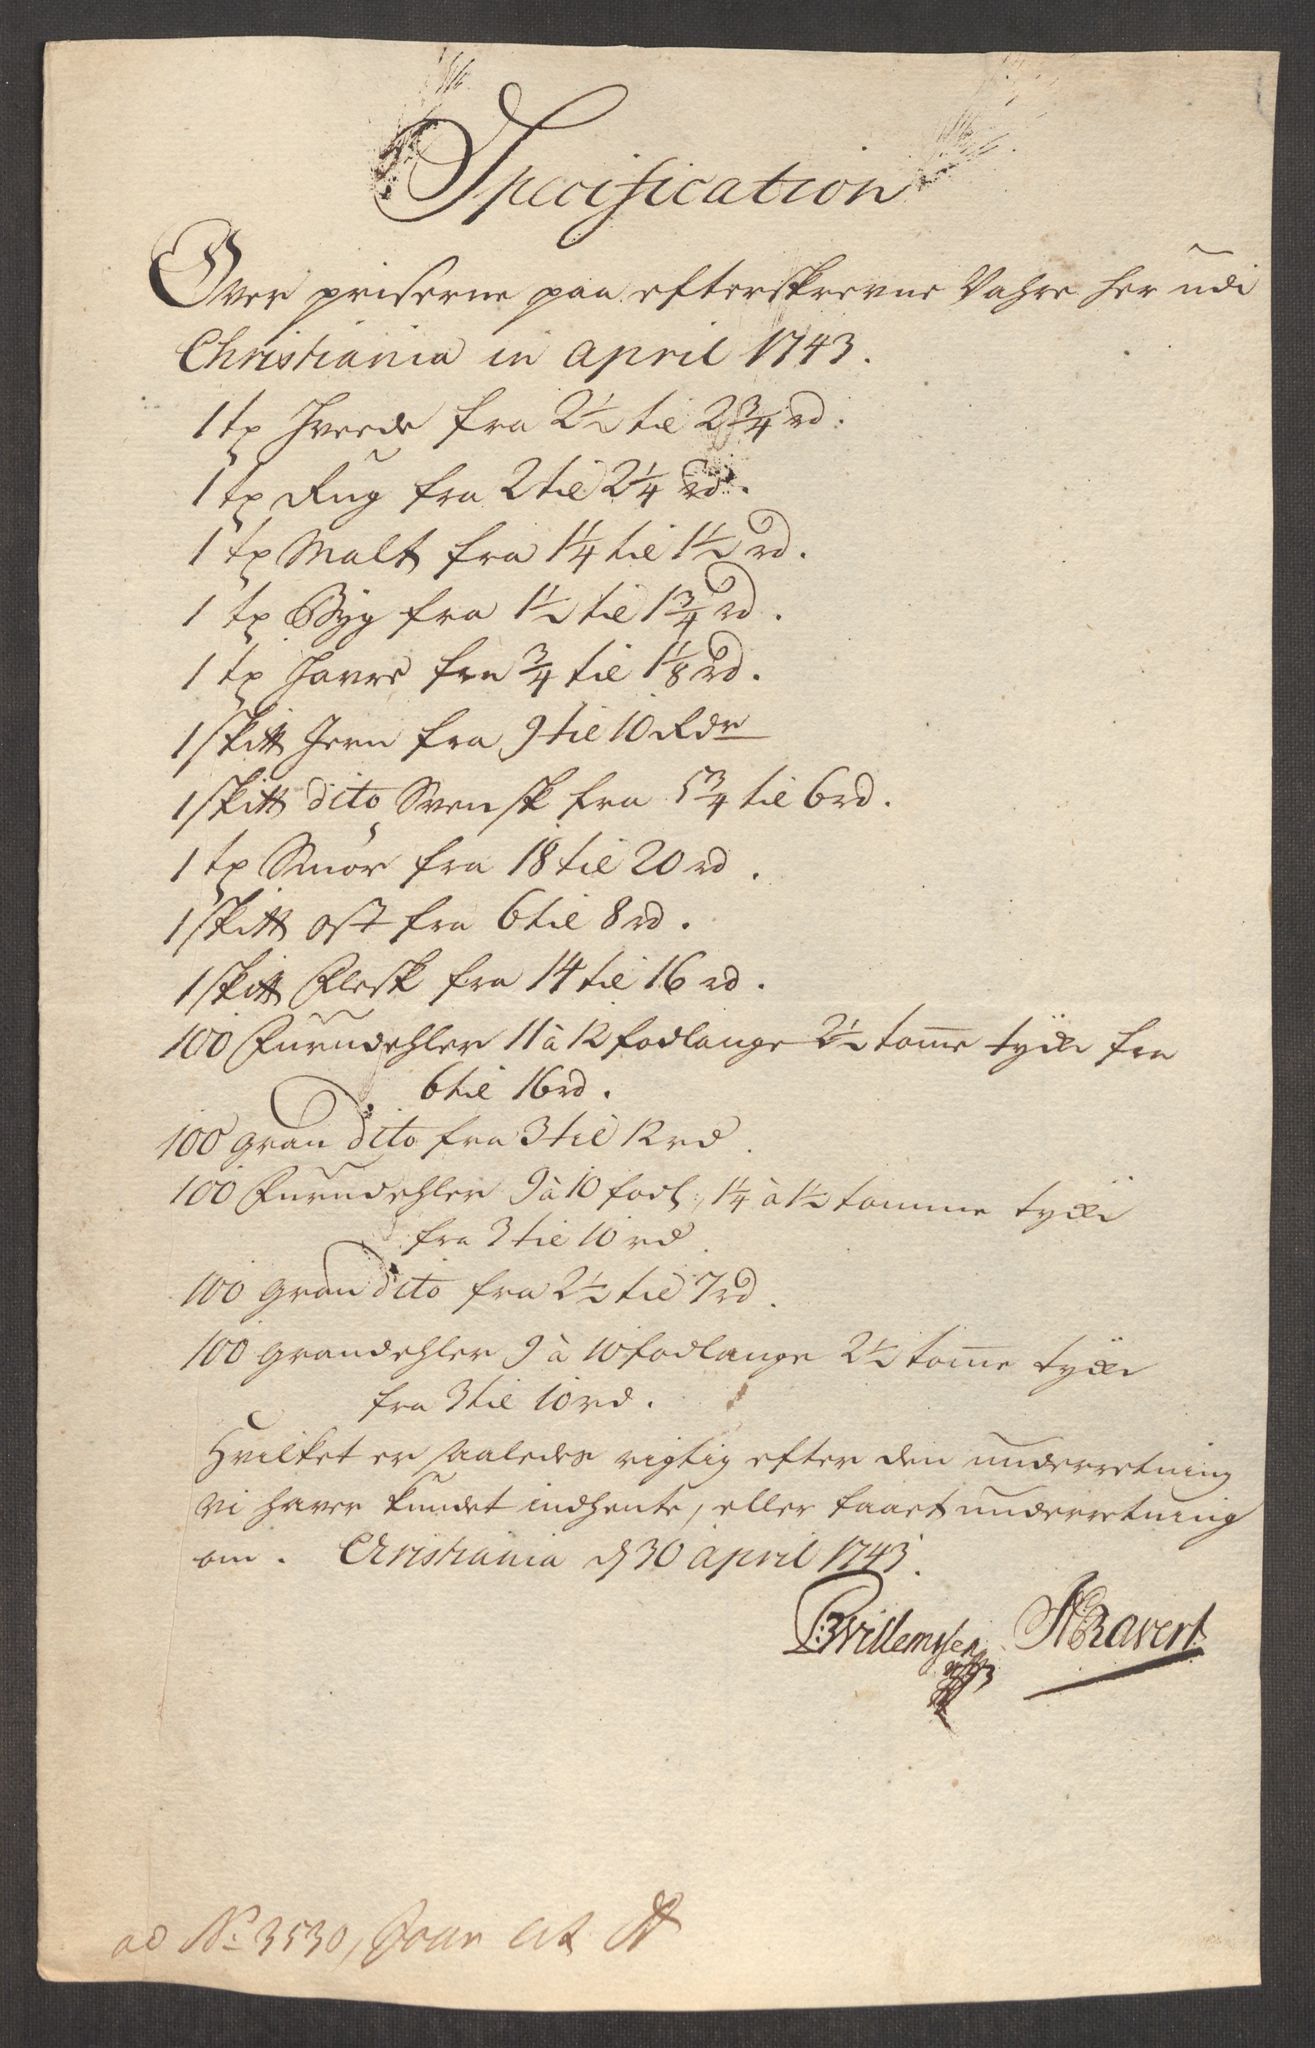 Specification
Over priserne paa efterskrevne Vahre her udi
Christiania in april 1743.
1 tp Hvede fra 2½ til 2¾ rd.
1 tp Rug fra 2 til 2¼ rd.
1 tp Malt fra 1¼ til 1½ rd.
1 tp Byg fra 1½ til 1¾ rd.
1 tp Havre fra ¾ til 1⅛ rd.
1 skitt Jern fra 9 til 10 Rdr
1 skitt dito Svensk fra 5¾ til 6 rd.
1 tp Smör fra 18 til 20 rd.
1 skitt ost fra 6 til 8 rd.
1 skitt Flesk fra 14 til 16 rd.
100 Furudehler 11 à 12 fodlange 2½ tom̅e tyke fra
6 til 16 rd.
100 gran dito fra 3 til 12 rd.
100 Furudehler 9 à 10 fodl: 1¼ à 1½ tomme tyke
fra 3 til 10 rd.
100 gran dito fra 2½ til 7 rd.
100 grandehler 9 à 10 fodlange 2½ tom̅e tyke
fra 3 til 10 rd.
Hvilket er saaledes rigtig efter den underretning
vi haver kundet indhente, eller faaet underretning
om. Christiania d 30 april 1743.
Willemsen Ravert
ad No: 3530, Foar